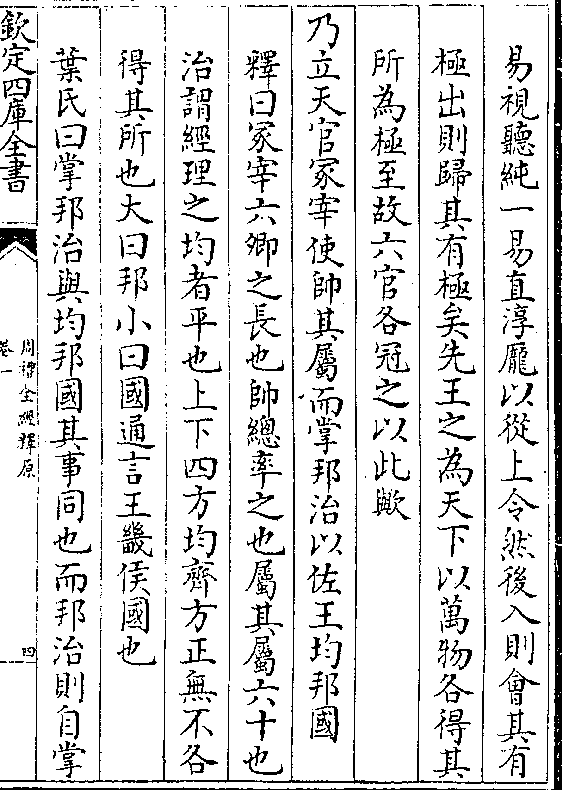 易視聽純一易直淳龐以從上令然後入則會其有
極出則歸其有極矣先王之為天下以萬物各得其
所為極至故六官各冠之以此歟
乃立天官冢宰使帥其屬而掌邦治以佐王均邦國
釋曰冢宰六卿之長也帥總率之也屬其屬六十也
治謂經理之均者平也上下四方均齊方正無不各
得其所也大曰邦小曰國通言王畿侯國也
葉氏曰掌邦治與均邦國其事同也而邦治則自掌
欽定四庫全書
周禮全經釋原
卷一
四